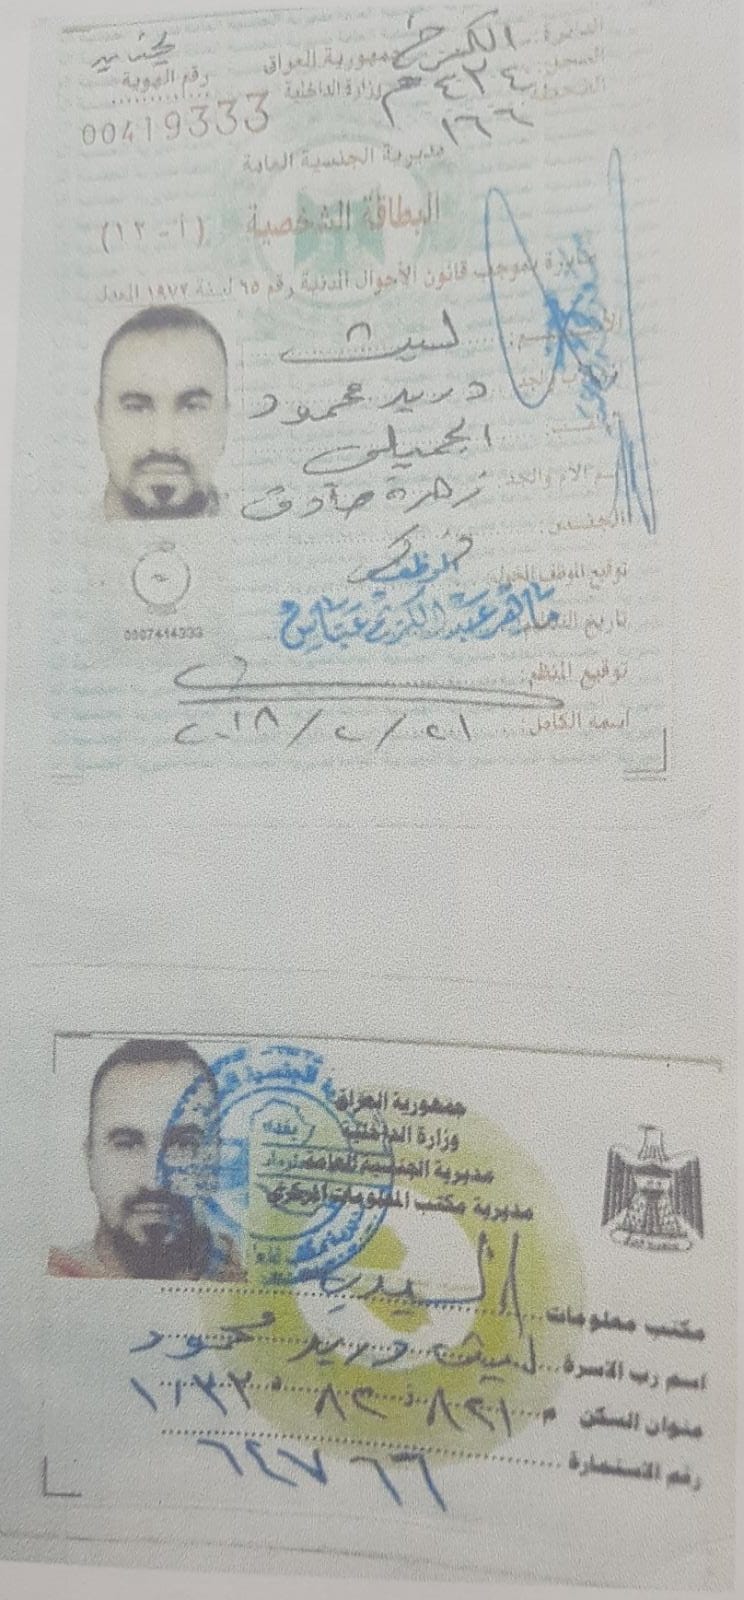 الدائرة: الكرخ
السجل: ٤٢٤ م
الصحيفة: ١٦٦
جمهورية العراق
وزارة الداخلية
رقم الهوية
00419333
مديرية الجنسية العامة
البطاقة الشخصية (أ - ١٢)
صادرة بموجب قانون الأحوال المدنية رقم ٦٥ لسنة ١٩٧٢ المعدل
ليث
دريد محمود
اللقب: الجميلي
اسم الأم والجد: زهرة صادق
الجنس: ذكر
توقيع الموظف
ماهر عبد الكريم عباس
0007414333
توقيع المنظم:
اسمه الكامل: ٢٠١٨/٢/٢١
جمهورية العراق
وزارة الداخلية
مديرية الجنسية العامة
مديرية مكتب المعلومات المركزي
مكتب معلومات السيدية
اسم رب الاسرة ليث دريد محمود
عنوان السكن م ٨٢١ ز ٨٢
رقم الاستمارة ٦٤٧٦٦